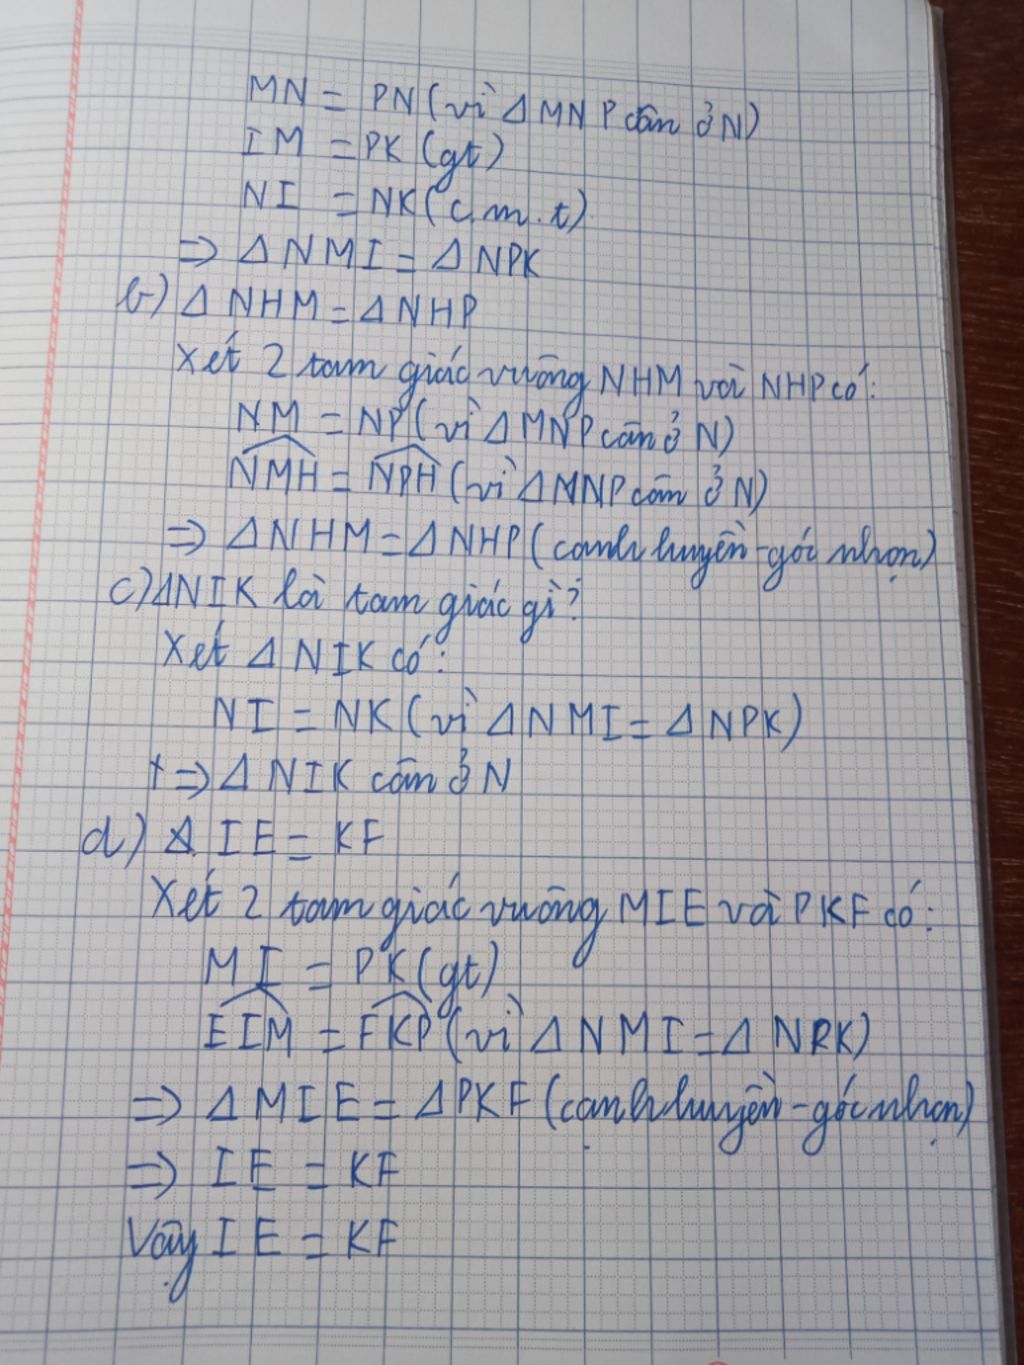 MN = PN (vì Δ MNP cân ở N)
IM = PK (gt)
NI = NK (c.m.t)
=> Δ NMI = Δ NPK
b) Δ NHM = Δ NHP
Xét 2 tam giác vuông NHM và NHP có:
NM = NP (vì Δ MNP cân ở N)
NMH = NPH (vì Δ MNP cân ở N)
=> Δ NHM = Δ NHP (cạnh huyền - góc nhọn)
c) Δ NIK là tam giác gì?
Xét Δ NIK có:
NI = NK (vì Δ NMI = Δ NPK)
+ => Δ NIK cân ở N
d) Δ IE = KF
Xét 2 tam giác vuông MIE và PKF có:
MI = PK (gt)
EIM = FKP (vì Δ NMI = Δ NPK)
=> Δ MIE = Δ PKF (cạnh huyền - góc nhọn)
=> IE = KF
Vậy IE = KF